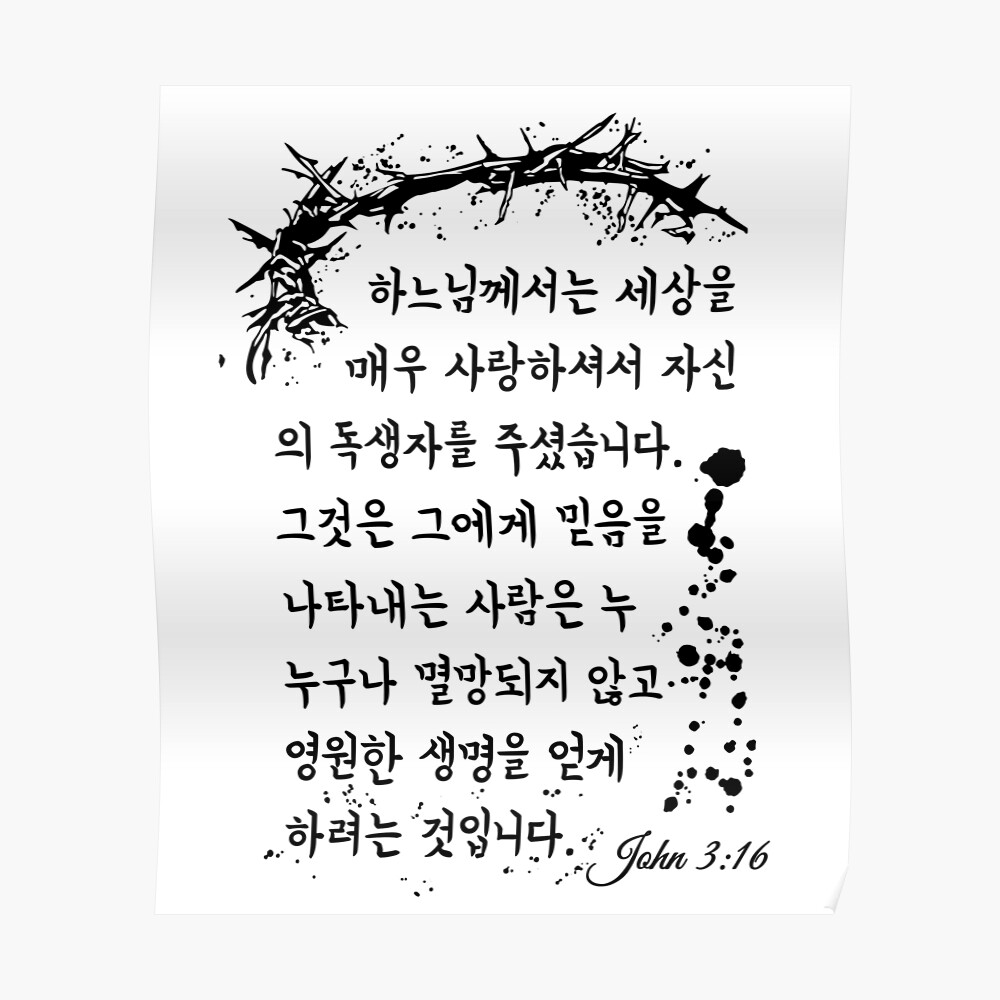 하느님께서는 세상을
매우 사랑하셔서 자신
의 독생자를 주셨습니다.
그것은 그에게 믿음을
나타내는 사람은 누
누구나 멸망되지 않고
영원한 생명을 얻게
하려는 것입니다.
John 3:16